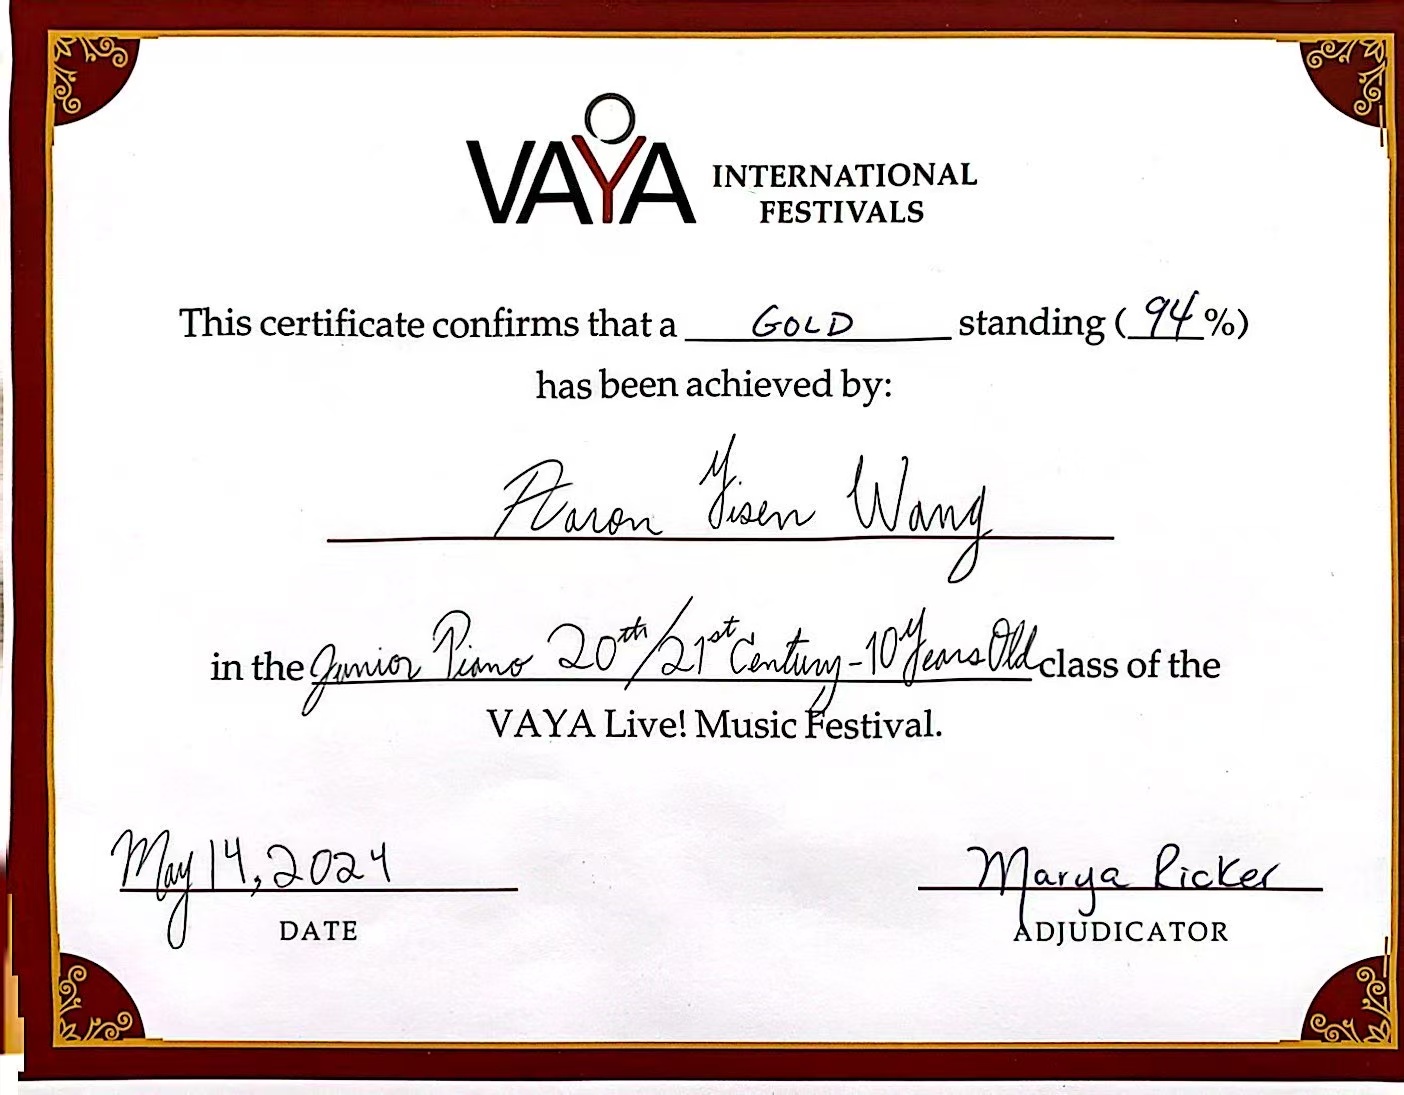 VAYA INTERNATIONAL
FESTIVALS
This certificate confirms that a GOLD standing (94%)
has been achieved by:
Aaron Yisen Wang
in the Junior Piano 20th/21st Century-10 Years Old class of the
VAYA Live! Music Festival.
May 14, 2024 Marya Ricker
DATE ADJUDICATOR